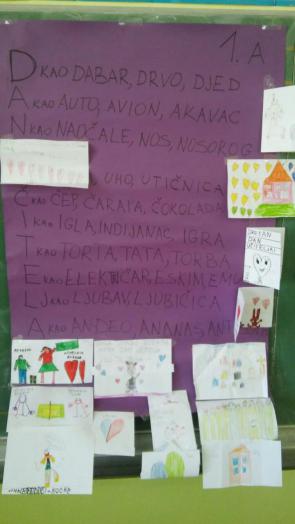 1. A
D KAO DABAR, DRVO, DJED
A KAO AUTO, AVION, AKAVAC
N KAO NAOČALE, NOS, NOSOROG
UHO, UTIČNICA
Č KAO ČEP, ČARAPA, ČOKOLADA
I KAO IGLA, INDIJANAC, IGRA
T KAO TORTA, TATA, TORBA
E KAO ESKIM, EMU
LJ KAO LJUBAV, LJUBIČICA
A KAO ANĐEO, ANANAS
DAN
UČITELJA!